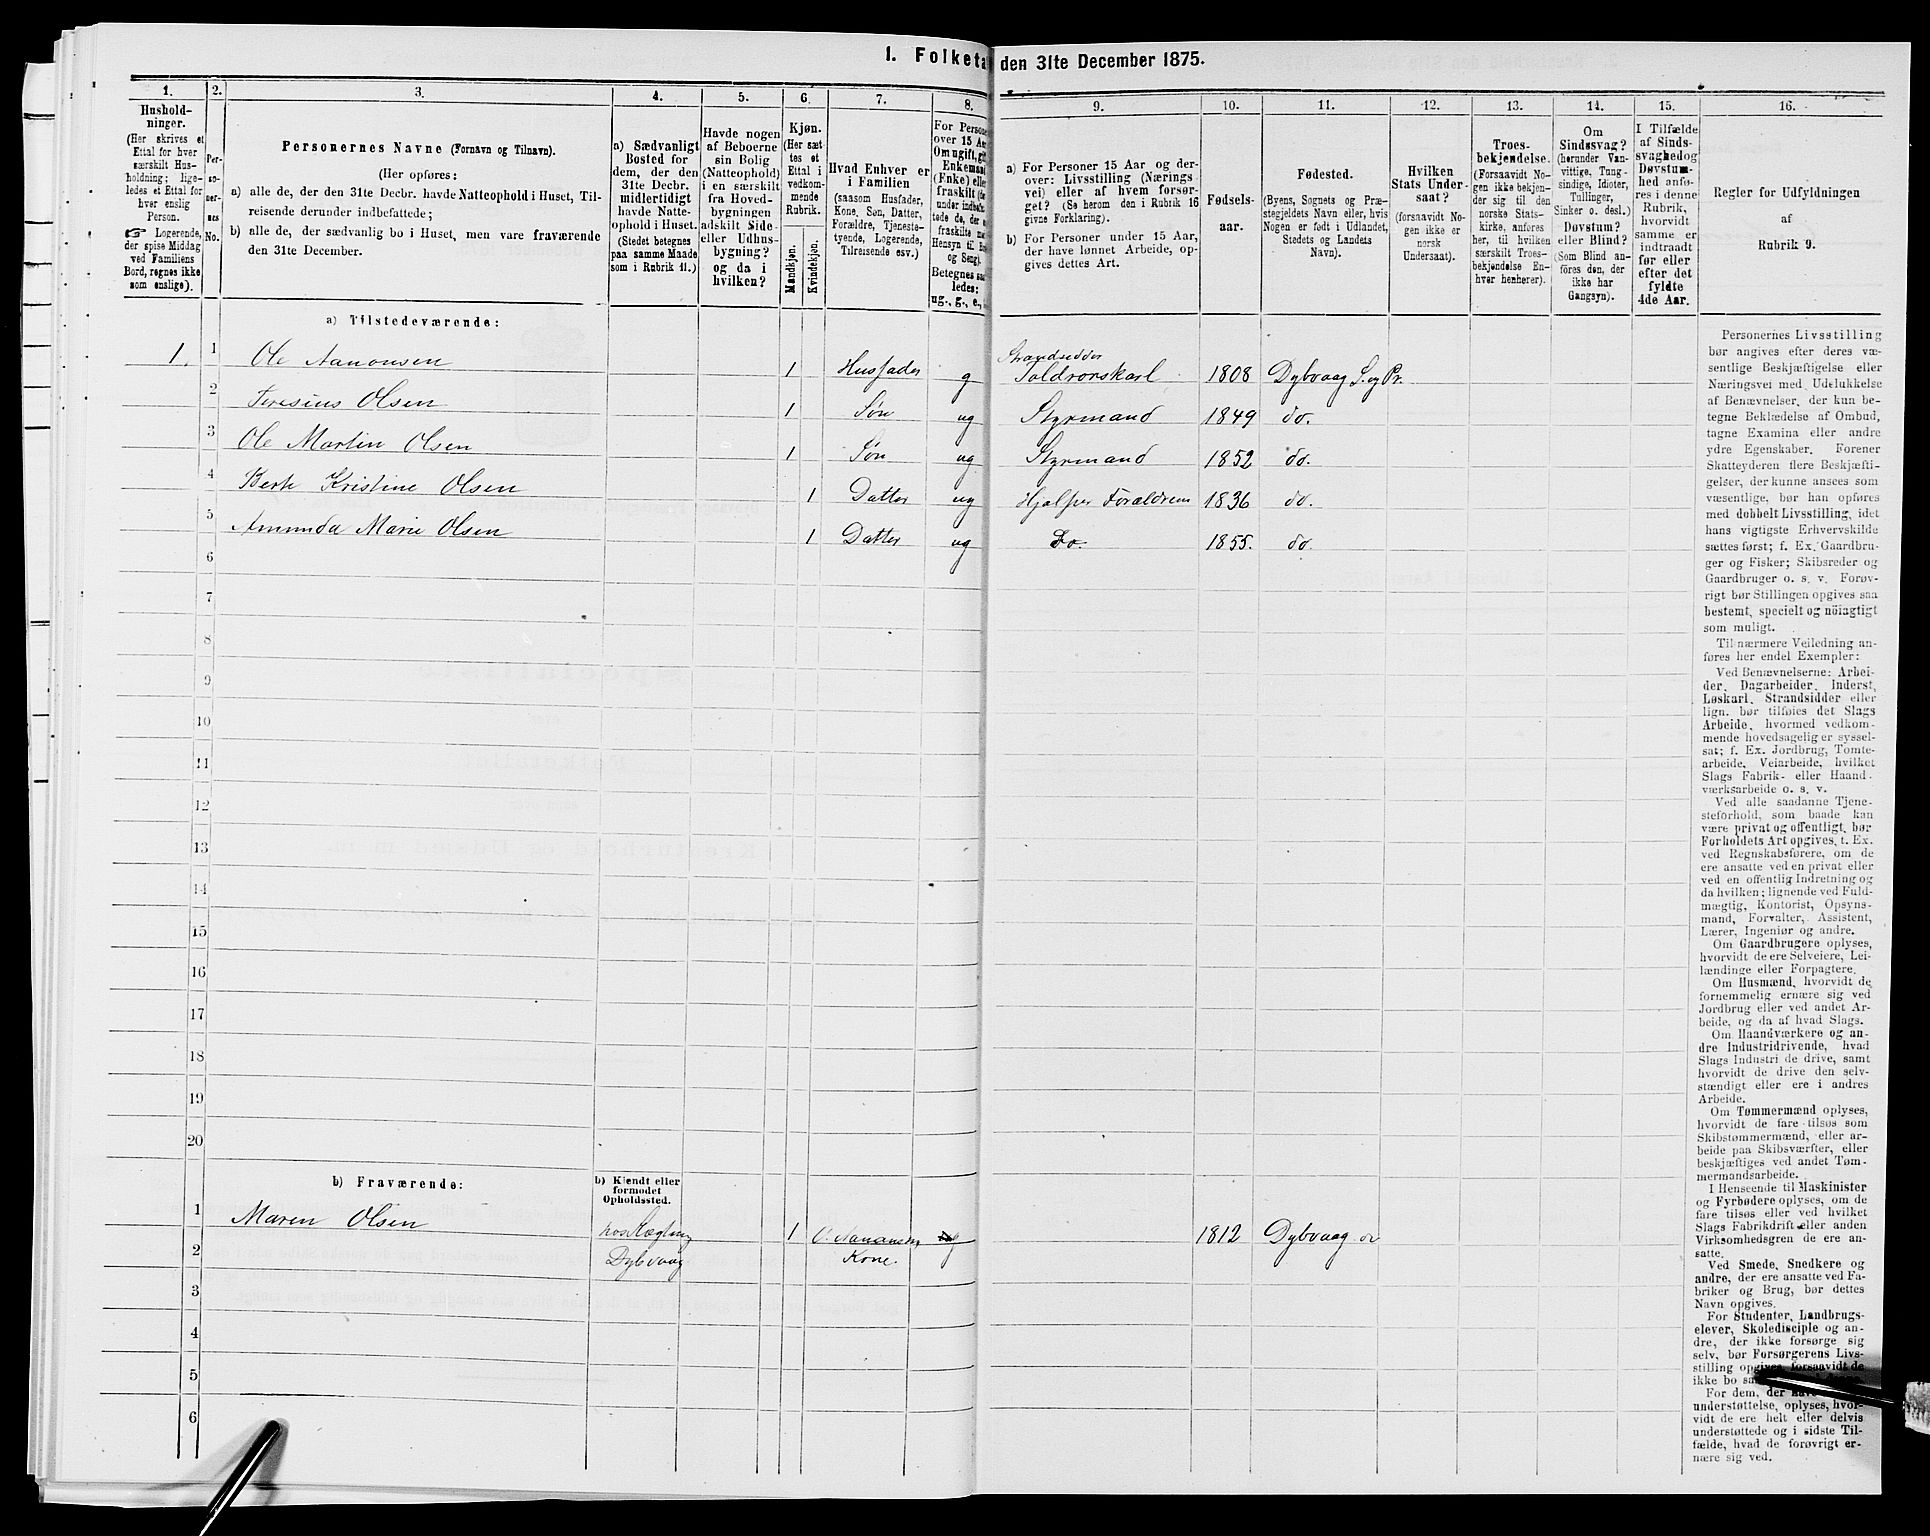 1. Folketa den 31te December 1875.
1. 2. 3. 4. 5. 6. 7. 8. 9. 10. 11. 12. 13. 14. 15. 16.
Hushold-
ninger.
(Her skrives et
Ettal for hver
særskilt Hus-
holdning; lige-
ledes et Ettal for
hver enslig
Person.
☞ Logerende,
der spise Middag
ved Familiens
Bord, regnes ikke
som enslige).
Per-
so-
ner-
nes
No.
Personernes Navne (Fornavn og Tilnavn).
(Her opføres:
a) alle de, der den 31te Decbr. havde Natteophold i Huset, Til-
reisende derunder indbefattede;
b) alle de, der sædvanlig bo i Huset, men vare fraværende
den 31te December.
a) Sædvanligt
Bosted for
dem, der den
31te Decbr.
midlertidigt
havde Natte-
ophold i Huset.
(Stedet betegnes
paa samme Maade
som i Rubrik 11.)
Havde nogen
af Beboerne
sin Bolig
(Natteophold)
i en særskilt
fra Hoved-
bygningen
adskilt Side-
eller Udhus-
bygning?
og da i
hvilken?
Kjøn.
(Her sæt-
tes et
Ettal i
vedkom-
mende
Rubrik.
Mandkjøn.
Kvindekjøn.
Hvad Enhver er
i Familien
(saasom Husfader,
Kone, Søn, Datter,
Forældre, Tjeneste-
tyende, Logerende,
Tilreisende osv.)
For Persone
over 15 Aar
Om ugift, gif
Enkemand
(Enke) elle
fraskilt
Betegnes saa
ledes:
ug., g., e.,
a) For Personer 15 Aar og der-
over: Livsstilling (Nærings-
vei) eller af hvem forsør-
get? (Se herom den i Rubrik 16
givne Forklaring).
b) For Personer under 15 Aar,
der have lønnet Arbeide, op-
gives dettes Art.
Fødsels-
aar.
Fødested.
(Byens, Sognets og Præ-
stegjeldets Navn eller, hvis
Nogen er født i Udlandet,
Stedets og Landets
Navn).
Hvilken
Stats Under-
saat?
(forsaavidt No-
gen ikke er
norsk
Undersaat).
Troes-
bekjendelse.
(Forsaavidt No-
gen ikke bekjen-
der sig til den
norske Stats-
kirke, anføres
her, til hvilken
særskilt Troes-
bekjendelse En-
hver henhører).
Om
Sindssvag?
(herunder Van-
vittige, Tung-
sindige, Idioter,
Tullinger,
Sinker o. desl.)
Døvstum?
eller Blind?
(Som Blind an-
føres den, der
ikke har
Gangsyn).
I Tilfælde
af Sinds-
svaghed og
Døvstum-
hed anfø-
res i denne
Rubrik,
hvorvidt
samme er
indtraadt
før eller
efter det
fyldte
4de Aar.
Regler for Udfyldningen
af
Rubrik 9.
a) Tilstedeværende:
1. 1 Ole Aanonsen 1 Husfader g Strandsidder Toldrorskarl 1808 Dybvaag S. og Pr.
2 Teresius Olsen 1 Søn ug Styrmand 1849 do.
3 Ole Martin Olsen 1 Søn ug Styrmand 1852 do.
4 Berte Kristine Olsen 1 Datter ug Hjælper Forældrene 1836 do.
5 Amunda Marie Olsen 1 Datter ug Do. 1855. do.
6
7
8
9
10
11
12
13
14
15
16
17
18
19
20
b) Fraværende:
b) Kjendt eller
formodet
Opholdssted.
1 Maren Olsen 1 O. Aanonsens 1812 Dybvaag
2 Dybvaag Kone.
3
4
5
6
Personernes Livsstilling
bør angives efter deres væ-
sentlige Beskjæftigelse eller
Næringsvei med Udelukkelse
af Benævnelser, der kun be-
tegne Beklædelse af Ombud,
tagne Examina eller andre
ydre Egenskaber. Forener
Skatteyderen flere Beskjæfti-
gelser, der kunne ansees som
væsentlige, bør han opføres
med dobbelt Livsstilling, idet
hans vigtigste Erhvervskilde
sættes først; f. Ex. Gaardbru-
ger og Fisker; Skibsreder og
Gaardbruger o. s. v. Forøv-
rigt bør Stillingen opgives saa
bestemt, specielt og nöiagtigt
som muligt.
Til nærmere Veiledning an-
føres her endel Exempler:
Ved Benævnelserne: Arbei-
der, Dagarbeider, Inderst,
Løskarl, Strandsidder eller
lign. bør tilføies det Slags
Arbeide, hvormed vedkom-
mende hovedsagelig er syssel-
sat; f. Ex. Jordbrug, Tomte-
arbeide, Veiarbeide, hvilket
Slags Fabrik- eller Haand-
værksarbeide o. s. v.
Ved alle saadanne Tjene-
steforhold, som baade kan
være privat og offentligt, bør
Forholdets Art opgives, t. Ex.
ved Regnskabsførere, om de
ere ansatte ved en privat eller
ved en offentlig Indretning og
da hvilken; lignende ved Fuld-
mægtig, Kontorist, Opsyns-
mand, Forvalter, Assistent,
Lærer, Ingeniør og andre.
Om Gaardbrugere oplyses,
hvorvidt de ere Selveiere, Lei-
lændinge eller Forpagtere.
Om Husmænd, hvorvidt de
fornemmelig ernære sig ved
Jordbrug eller ved andet Ar-
beide, og da af hvad Slags.
Om Haandværkere og an-
dre Industridrivende, hvad
Slags Industri de drive, samt
hvorvidt de drive den selv-
stændigt eller ere i andres
Arbeide.
Om Tømmermænd oplyses,
hvorvidt de fare tilsøs som
Skibstømmermænd, eller ar-
beide paa Skibsværfter, eller
beskjæftiges ved andet Tøm-
mermandsarbeide.
I Henseende til Maskinister
og Fyrbødere oplyses, om de
fare tilsøs eller ved hvilket
Slags Fabrikdrift eller anden
Virksomhedsgren de ere an-
satte.
Ved Smede, Snedkere og
andre, der ere ansatte ved Fa-
briker og Brug, bør dettes
Navn opgives.
For Studenter, Landbrugs-
elever, Skoledisciple og an-
dre, der ikke forsørge sig
selv, bør Forsørgerens Livs-
stilling opgives, forsaavidt de
ikke bo
For dem, der have
understøttelse, oplyses, hvor-
vidt de ere helt eller delvis
understøttede og i sidste Til-
fælde, hvad de forøvrigt er-
nære sig ved.